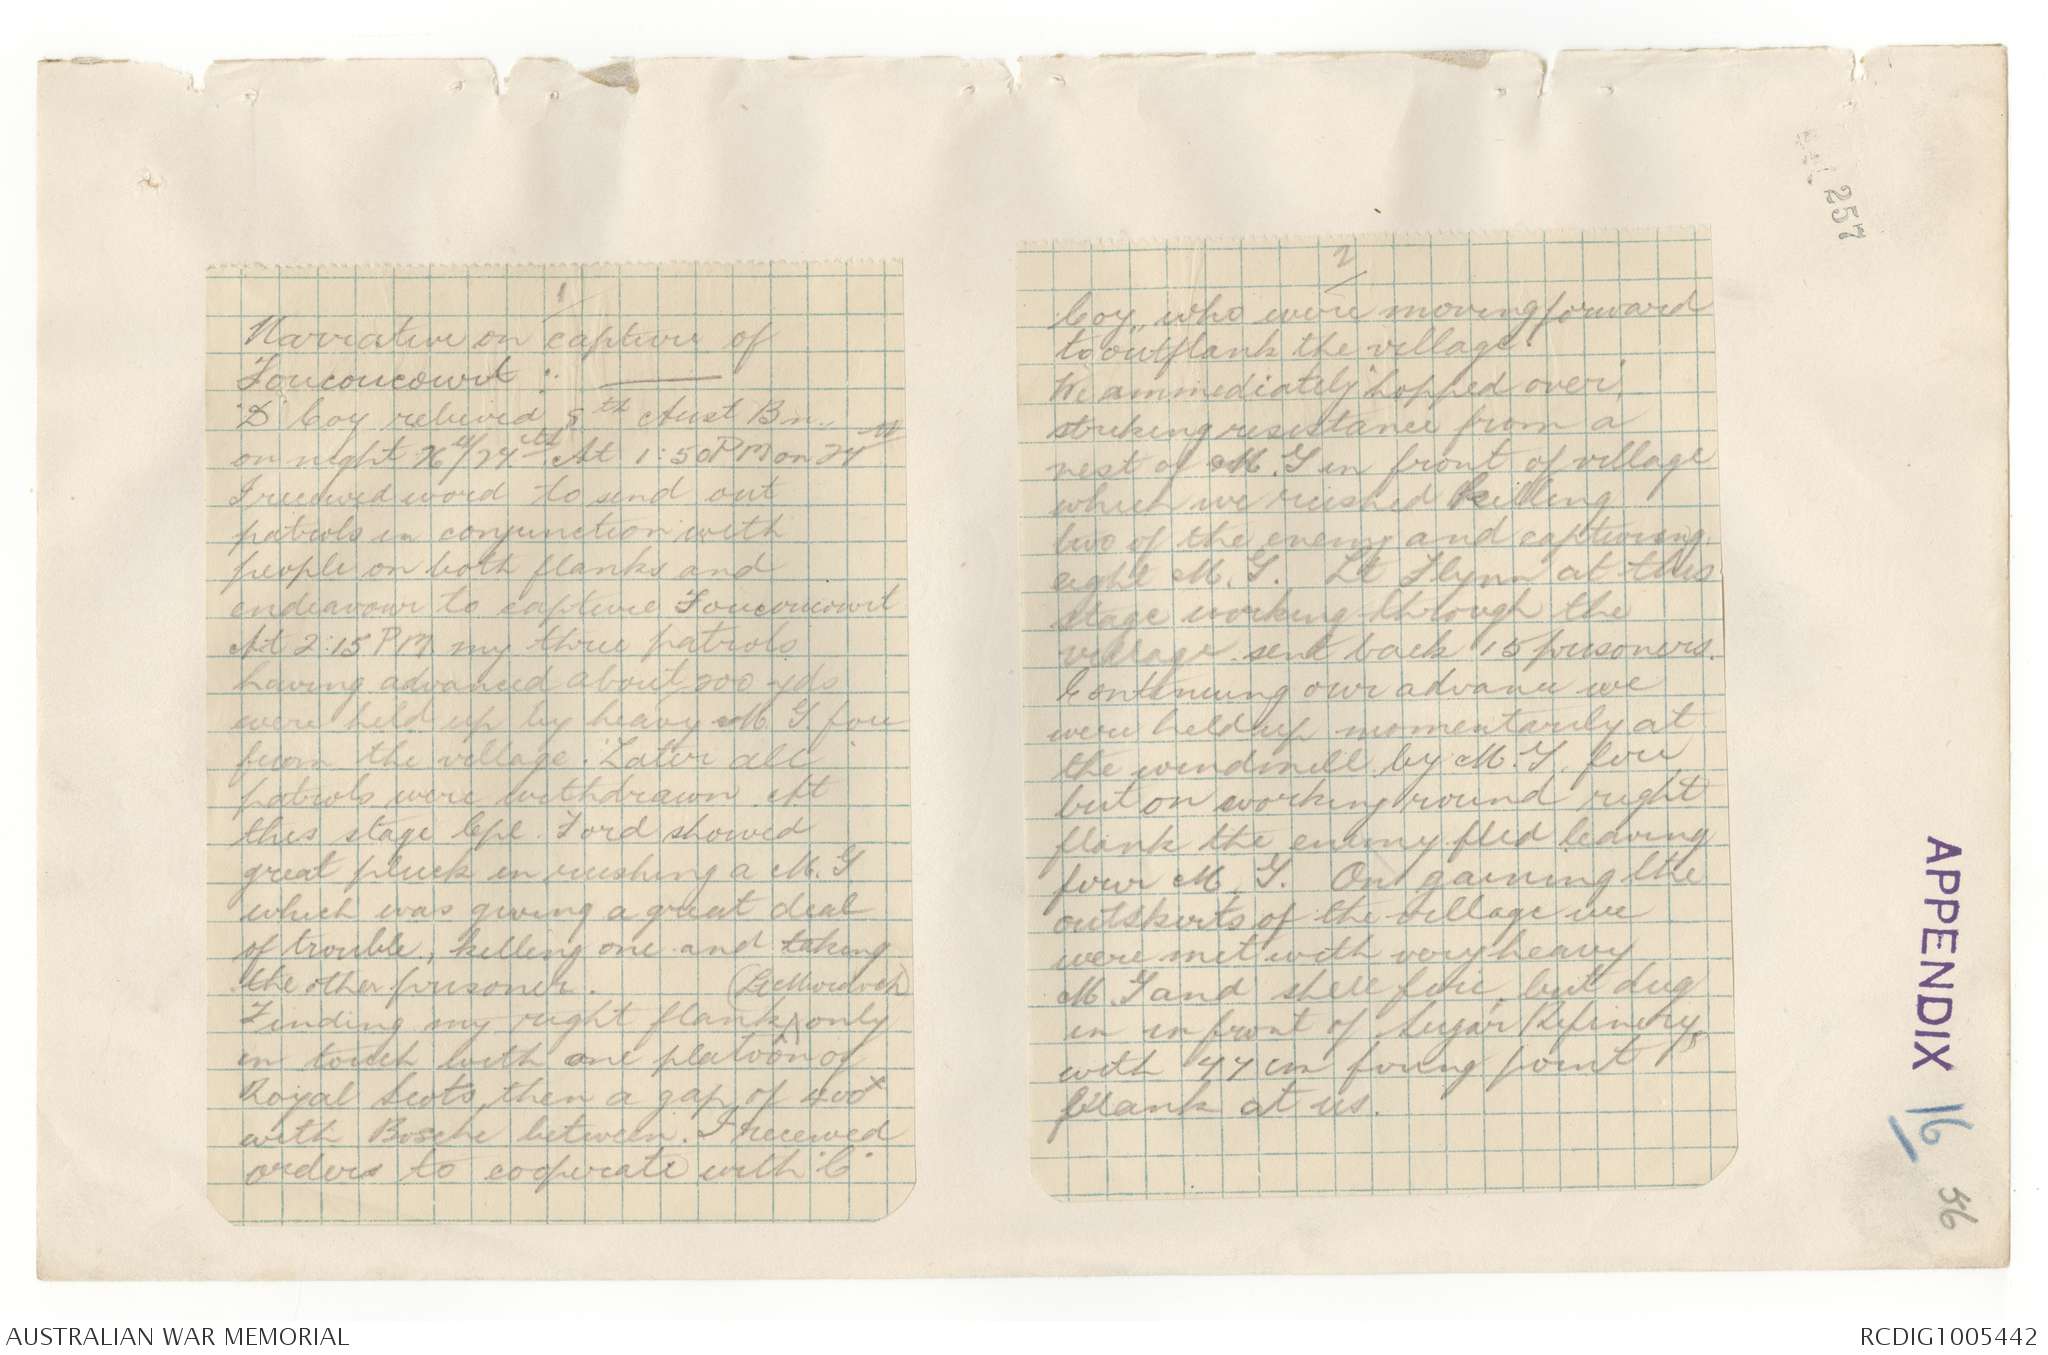 257
1/
Narrative on capture of
Foucoucourt :
"D" Coy relieved 8th Aust Bn.
on night 26th/27th. At 1:50 PM on 27th
I received word to send out
patrols in conjunction with
people on both flanks and
endeavour to capture Foucoucourt
At 2:15 PM my three patrols
having advanced about 200 yds
were held up by heavy M.G. fire
from the village. Later all
patrols were withdrawn. At
this stage Cpl. Ford showed
great pluck in rushing a M.G
which was giving a great deal
of trouble, killing one and taking
the other prisoner.
(Lt Murdoch)
Finding my right flank only
in touch with one platoon of
Royal Scots, then a gap of 400x
with Bosche between. I received
orders to cooperate with "C"
2/
Coy, who were moving forward
to outflank the village.
We ammediately "hopped over",
striking resistance from a
nest of M.G in front of village
which we rushed killing
two of the enemy and capturing
eight M.G. Lt Flynn at this
stage working through the
village sent back 15 prisoners.
Continuing our advance we
were held up momentarily at
the windmill by M.G. fire
but on working round right
flank the enemy fled leaving
four M.G. On gaining the
outskirts of the village we
were met with very heavy
M.G and shell fire, but dug
in in front of Sugar Refinery
with 77 cm firing point
blank at us.
APPENDIX 16
56
AUSTRALIAN WAR MEMORIAL
RCDIG1005442